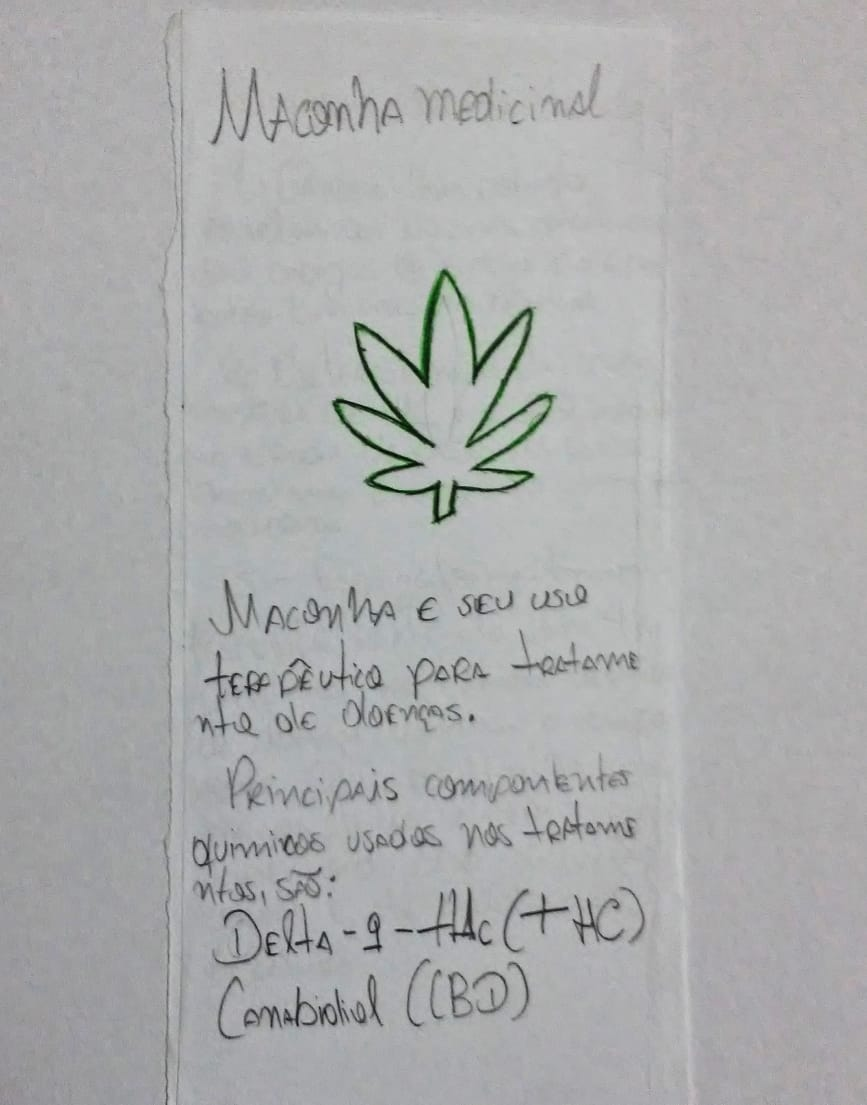 Maconha medicinal
Maconha e seu uso
terapêutico para tratame
nto de doenças.
Principais componentes
químicos usados nos tratame
ntos, são:
Delta-9-THC (THC)
Canabidiol (CBD)